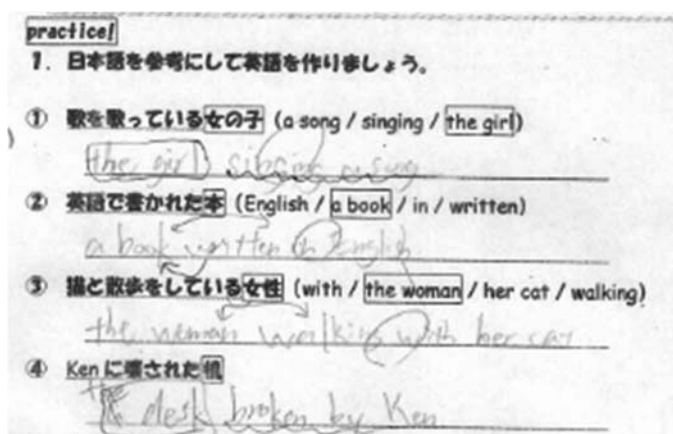 practice!
1. 日本語を参考にして英語を作りましょう。
① 歌を歌っている女の子 (a song / singing / the girl)
the girl singing a song
② 英語で書かれた本 (English / a book / in / written)
a book written in English
③ 猫と散歩をしている女性 (with / the woman / her cat / walking)
the woman walking with her cat
④ Kenに壊された机
the desk broken by Ken